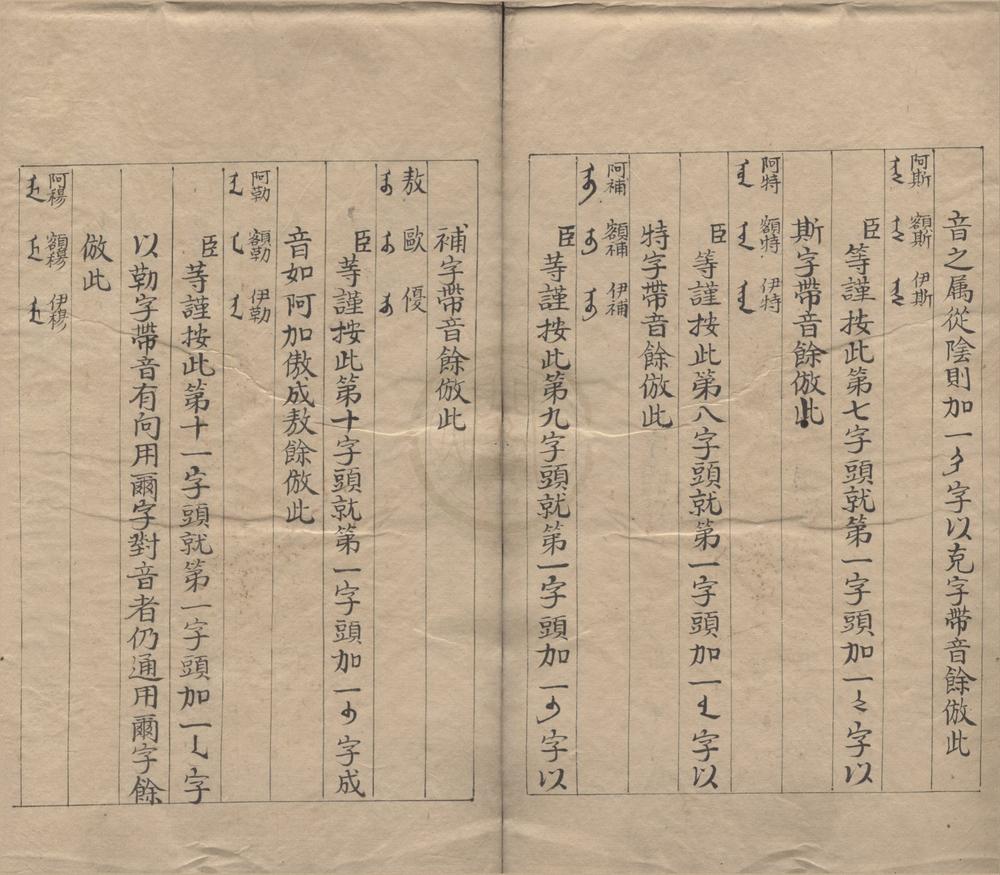 音之属從陰則加一ᡴ字以克字帶音餘倣此
阿斯 額斯 伊斯
ᠠᠰ ᡝᠰ ᡳᠰ
臣等謹按此第七字頭就第一字頭加一ᠰ字以
斯字帶音餘倣此
阿特 額特 伊特
ᠠᡨ ᡝᡨ ᡳᡨ
臣等謹按此第八字頭就第一字頭加一ᡨ字以
特字帶音餘倣此
阿補 額補 伊補
ᠠᠪ ᡝᠪ ᡳᠪ
臣等謹按此第九字頭就第一字頭加一ᠪ字以
補字帶音餘倣此
敖 歐 優
ᠠᠣ ᡝᠣ ᡳᠣ
臣等謹按此第十字頭就第一字頭加一ᠣ字成
音如阿加傲成敖餘倣此
阿勒 額勒 伊勒
ᠠᠯ ᡝᠯ ᡳᠯ
臣等謹按此第十一字頭就第一字頭加一ᠯ字
以勒字帶音有向用爾字對音者仍通用爾字餘
倣此
阿穆 額穆 伊穆
ᠠᠮ ᡝᠮ ᡳᠮ